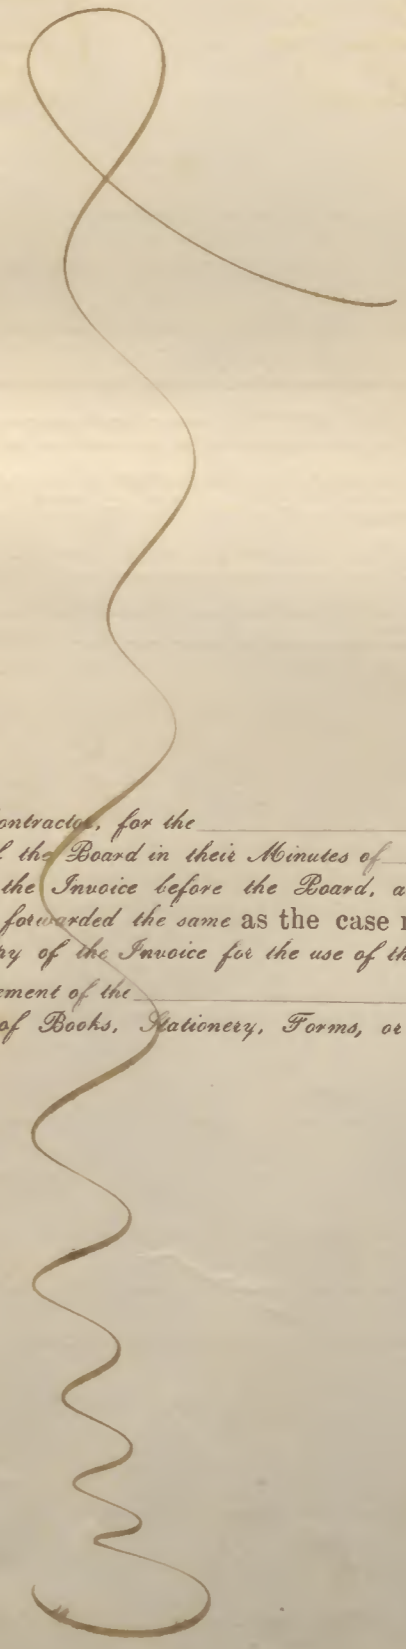 ontractor, for the
the Board in their Minutes of
the Invoice before the Board, a
forwarded the same as the case
py of the Invoice for the use of th
ement of the
of Books, Stationery, Forms, or